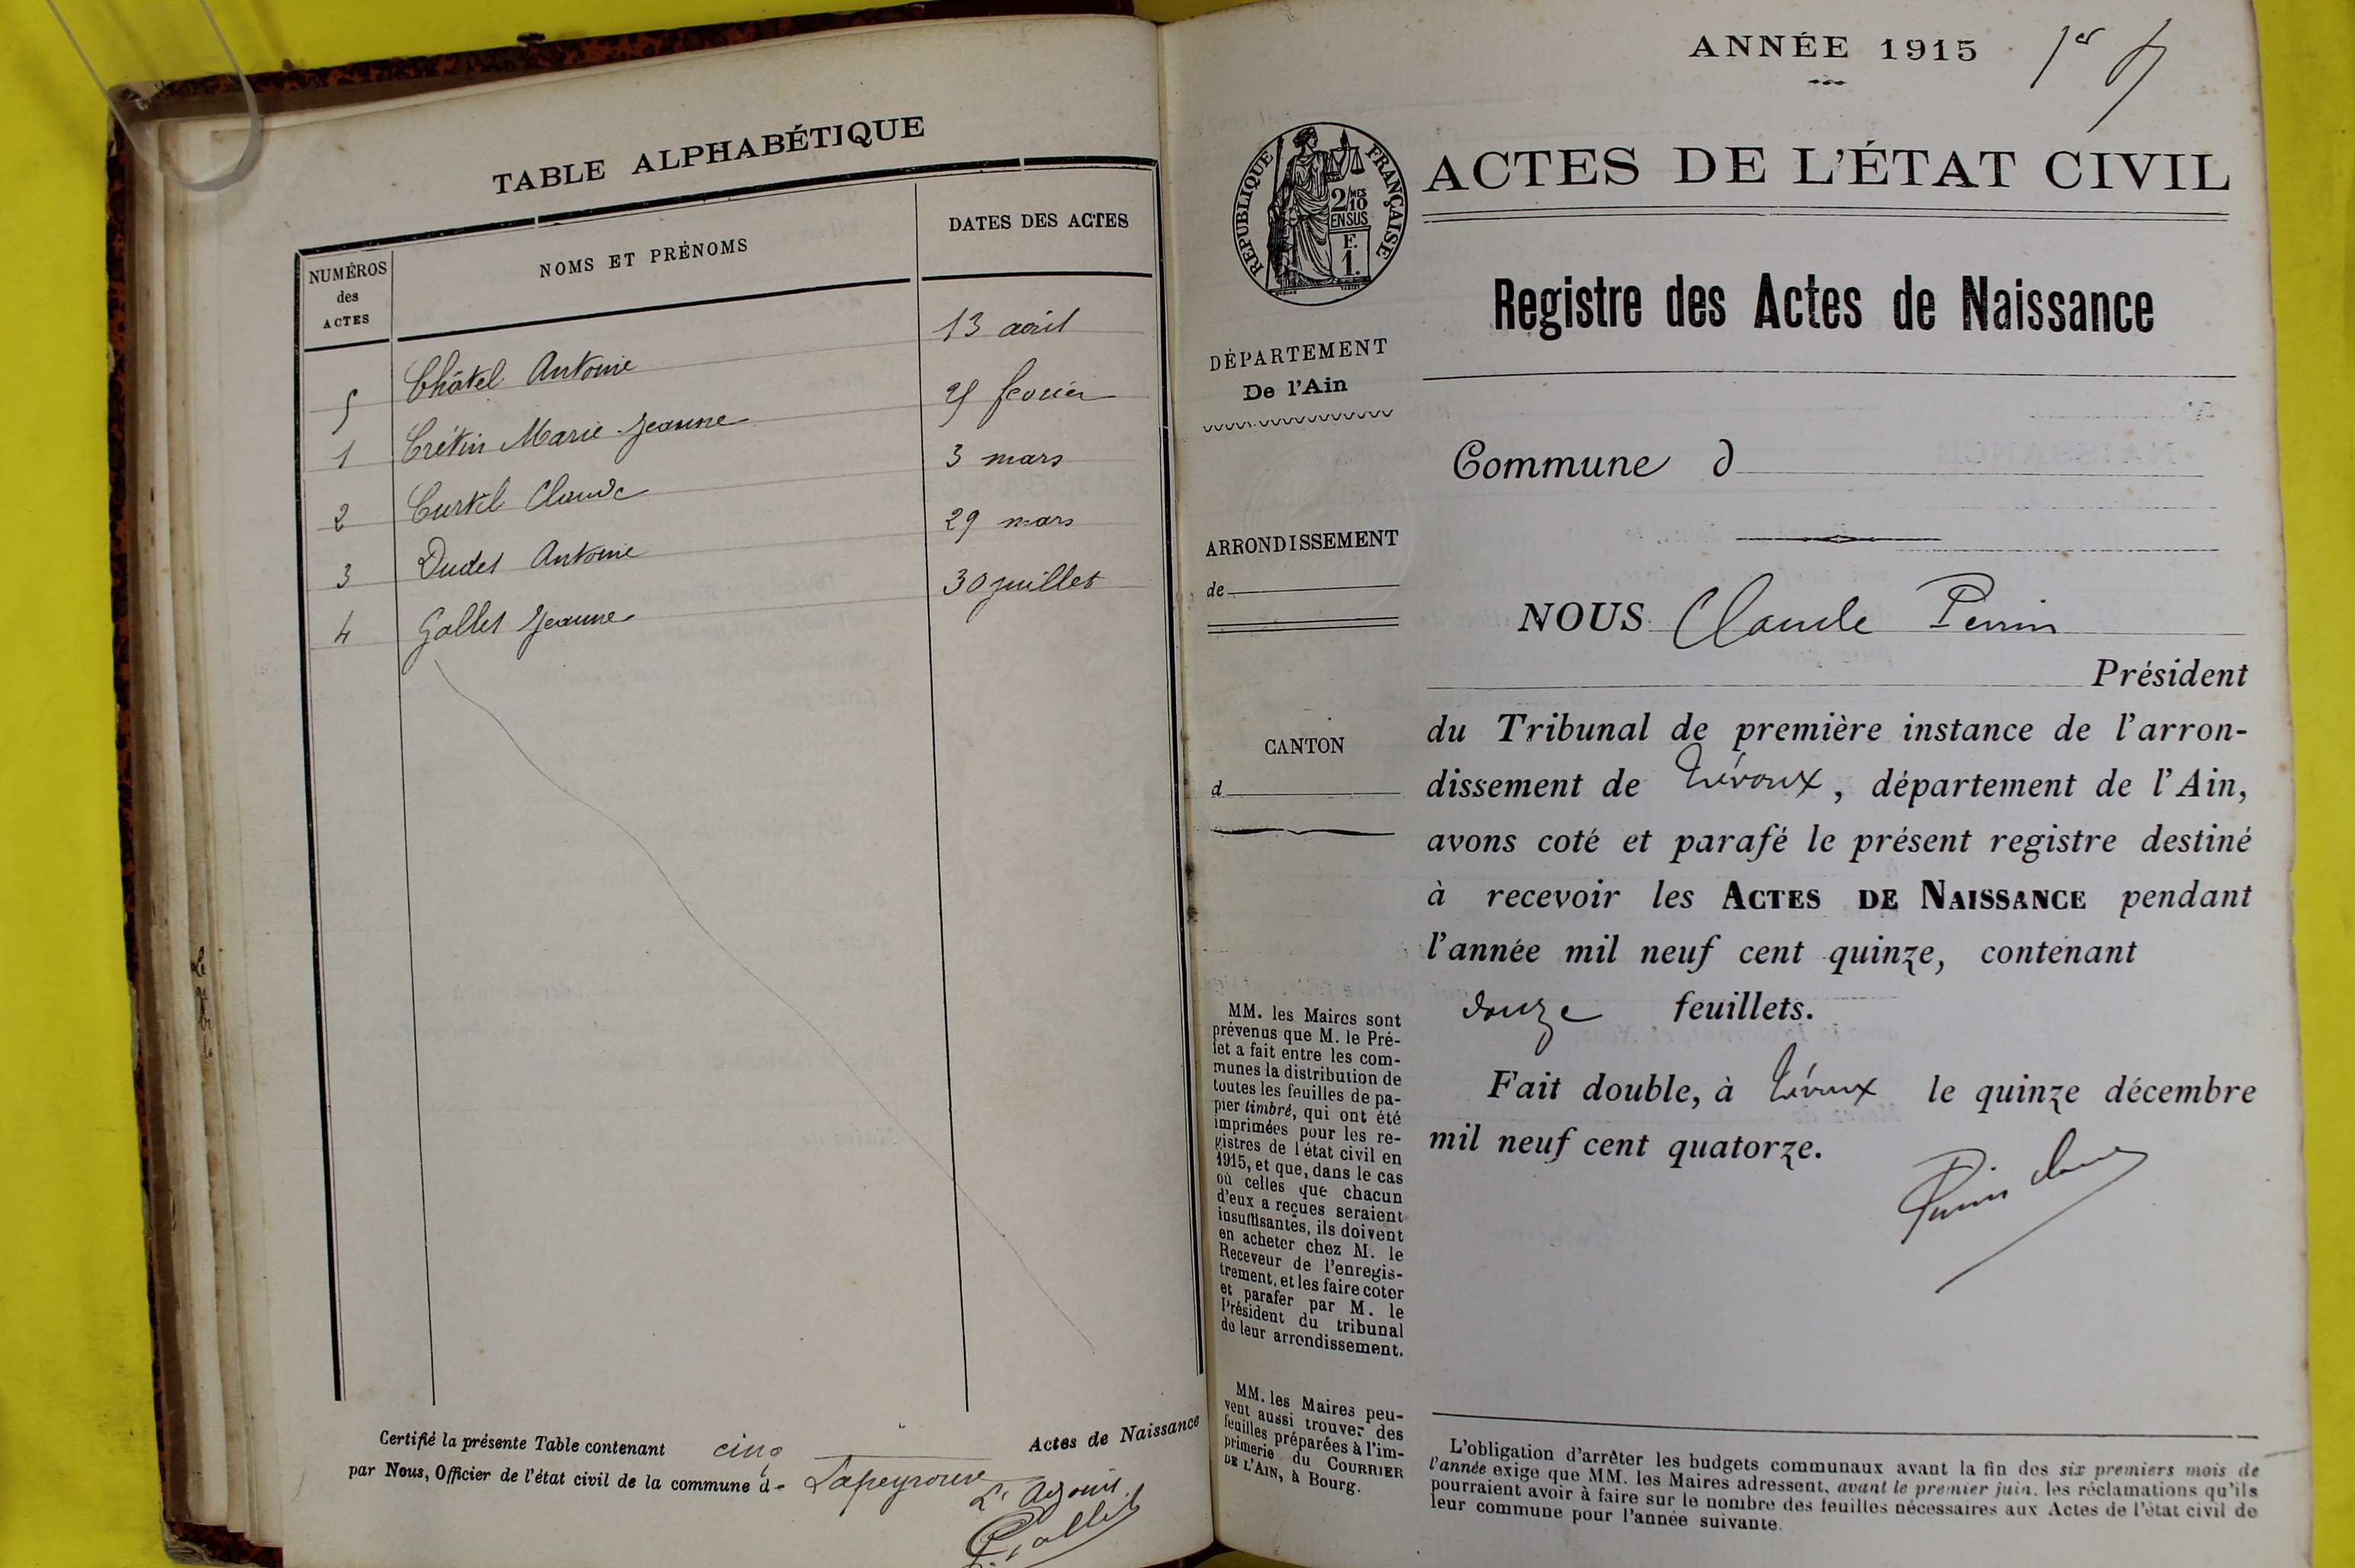 TABLE ALPHABÉTIQUE
NUMÉROS
des
ACTES
NOMS ET PRÉNOMS
DATES DES ACTES
5 Châtel Antoine 13 avril
1 Crétin Marie Jeanne 25 février
2 Curtil Claude 3 mars
3 Dudet Antoine 29 mars
4 Gallet Jeanne 30 juillet
Certifié la présente Table contenant cinq Actes de Naissance
par Nous, Officier de l'état civil de la commune de Lapeyrouse
L'Adjoint
Gallet
ANNÉE 1915 1er
RÉPUBLIQUE FRANÇAISE
2/10 MES
EN SUS
F.
1.
ACTES DE L'ÉTAT CIVIL
Registre des Actes de Naissance
DÉPARTEMENT
De l'Ain
Commune d
ARRONDISSEMENT
de
CANTON
d
NOUS Claude Perrin
Président
du Tribunal de première instance de l'arron-
dissement de Trévoux, département de l'Ain,
avons coté et parafé le présent registre destiné
à recevoir les ACTES DE NAISSANCE pendant
l'année mil neuf cent quinze, contenant
douze feuillets.
Fait double, à Trévoux le quinze décembre
mil neuf cent quatorze.
Perrin Claude
MM. les Maires sont
prévenus que M. le Pré-
fet a fait entre les com-
munes la distribution de
toutes les feuilles de pa-
pier timbré, qui ont été
imprimées pour les re-
gistres de l'état civil en
1915, et que, dans le cas
où celles que chacun
d'eux a reçues seraient
insuffisantes, ils doivent
en acheter chez M. le
Receveur de l'enregis-
trement, et les faire coter
et parafer par M. le
Président du tribunal
de leur arrondissement.
MM. les Maires peu-
vent aussi trouver des
feuilles préparées à l'im-
primerie du COURRIER
DE L'AIN, à Bourg.
L'obligation d'arrêter les budgets communaux avant la fin des six premiers mois de
l'année exige que MM. les Maires adressent, avant le premier juin, les réclamations qu'ils
pourraient avoir à faire sur le nombre des feuilles nécessaires aux Actes de l'état civil de
leur commune pour l'année suivante.